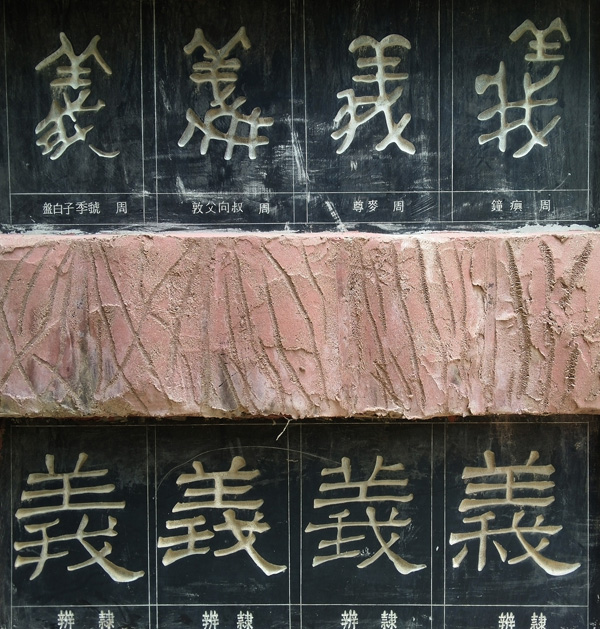 義 義 義 義
周 鐘
周 麥尊
周 叔向父敦
周 虢季子白盤
義 義 義 義
隸辨 隸辨 隸辨 隸辨